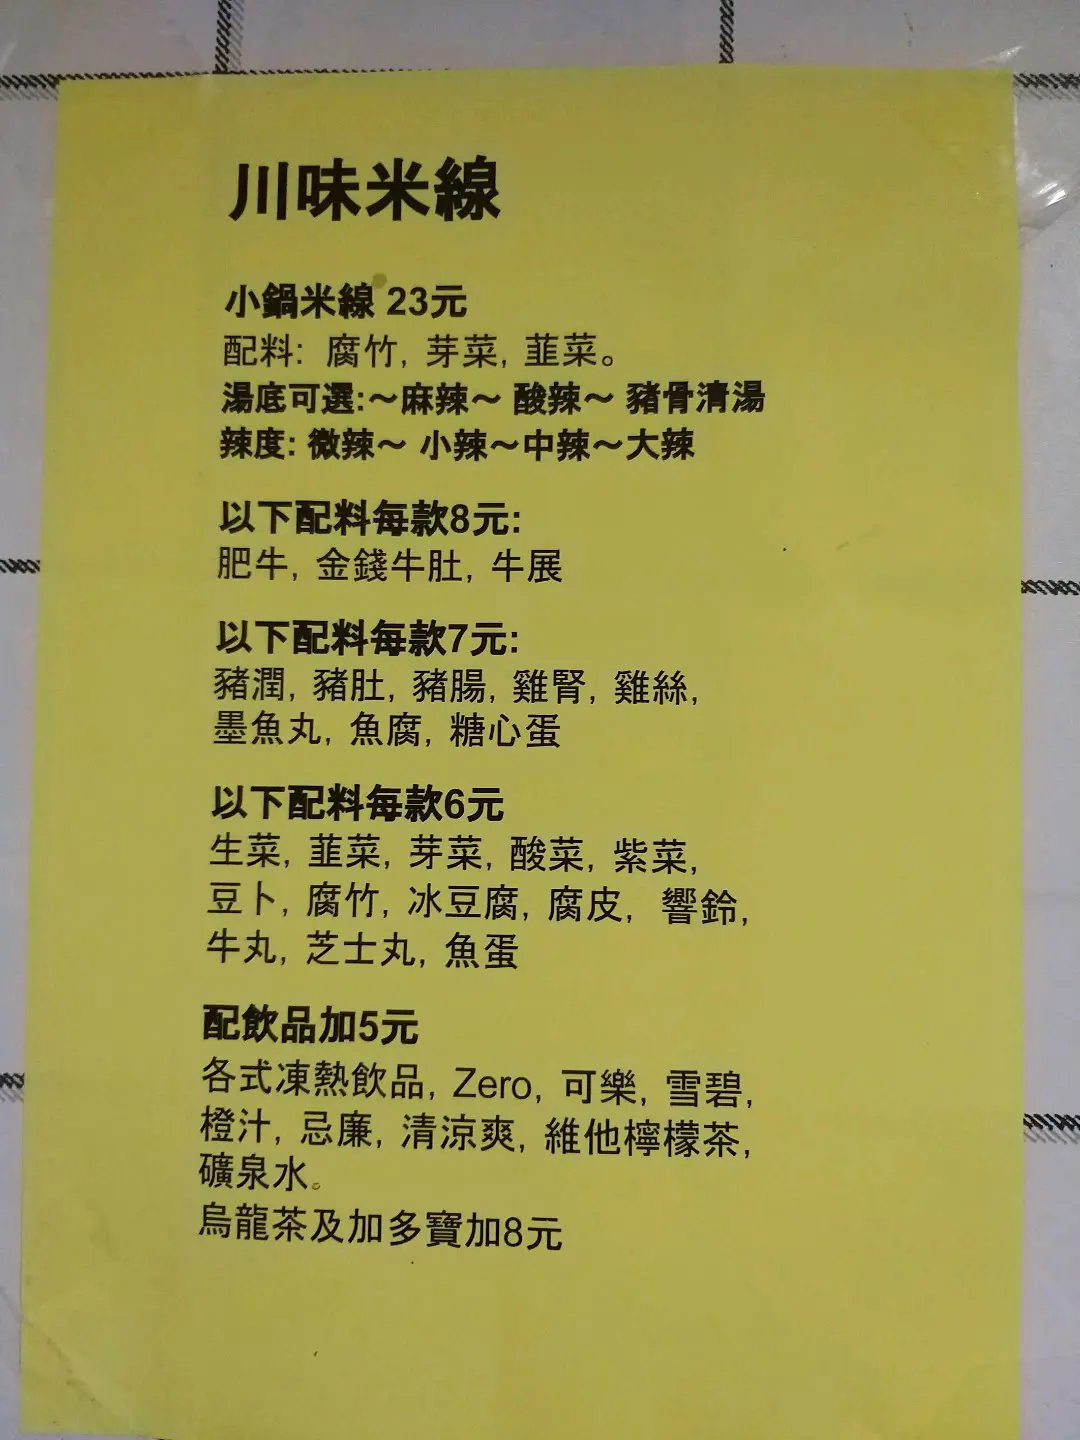 川味米線
小鍋米線 23元
配料: 腐竹, 芽菜, 韮菜。
湯底可選:～麻辣～ 酸辣～ 豬骨清湯
辣度: 微辣～ 小辣～中辣～大辣
以下配料每款8元:
肥牛, 金錢牛肚, 牛展
以下配料每款7元:
豬潤, 豬肚, 豬腸, 雞腎, 雞絲,
墨魚丸, 魚腐, 糖心蛋
以下配料每款6元
生菜, 韮菜, 芽菜, 酸菜, 紫菜,
豆卜, 腐竹, 冰豆腐, 腐皮, 響鈴,
牛丸, 芝士丸, 魚蛋
配飲品加5元
各式凍熱飲品, Zero, 可樂, 雪碧,
橙汁, 忌廉, 清涼爽, 維他檸檬茶,
礦泉水。
烏龍茶及加多寶加8元